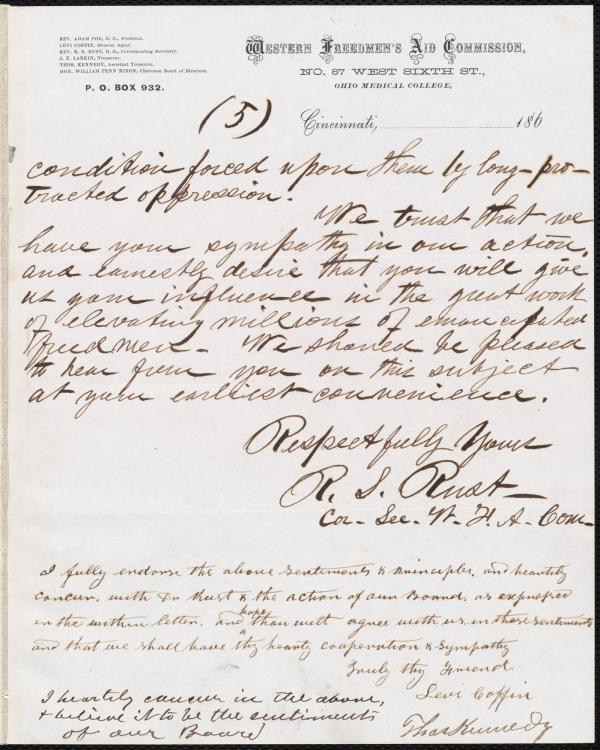 REV. ADAM POE, D. D., President.
LEVI COFFIN, General Agent.
REV. R. S. RUST, D. D., Corresponding Secretary.
J. F. LARKIN, Treasurer.
THOS. KENNEDY, Assistant Treasurer.
HON. WILLIAM PENN NIXON, Chairman Board of Directors.
P. O. BOX 932.
Western Freedmen's Aid Commission,
NO. 87 WEST SIXTH ST.,
OHIO MEDICAL COLLEGE,
(5)
Cincinnati, 186
condition forced upon them by long-pro-
tracted oppression.
We trust that we
have your sympathy in our action,
and earnestly desire that you will give
us your influence in the great work
of elevating millions of emancipated
freedmen- We should be pleased
to hear from you on this subject
at your earliest convenience.
Respectfully Yours
R. S. Rust-
Cor- Sec- W. F. A- Com-
I fully endorse the above sentiments & principles. and heartily
concur. with Dr Rust & the action of our Board. as expressed
in the within letter. and hope thou wilt agree with us in these sentiments
and that we shall have thy hearty cooperation & Sympathy
Truly thy Friend
Levi Coffin
I heartily concur in the above,
& believe it to be the sentiments
of our Board
Thos Kennedy